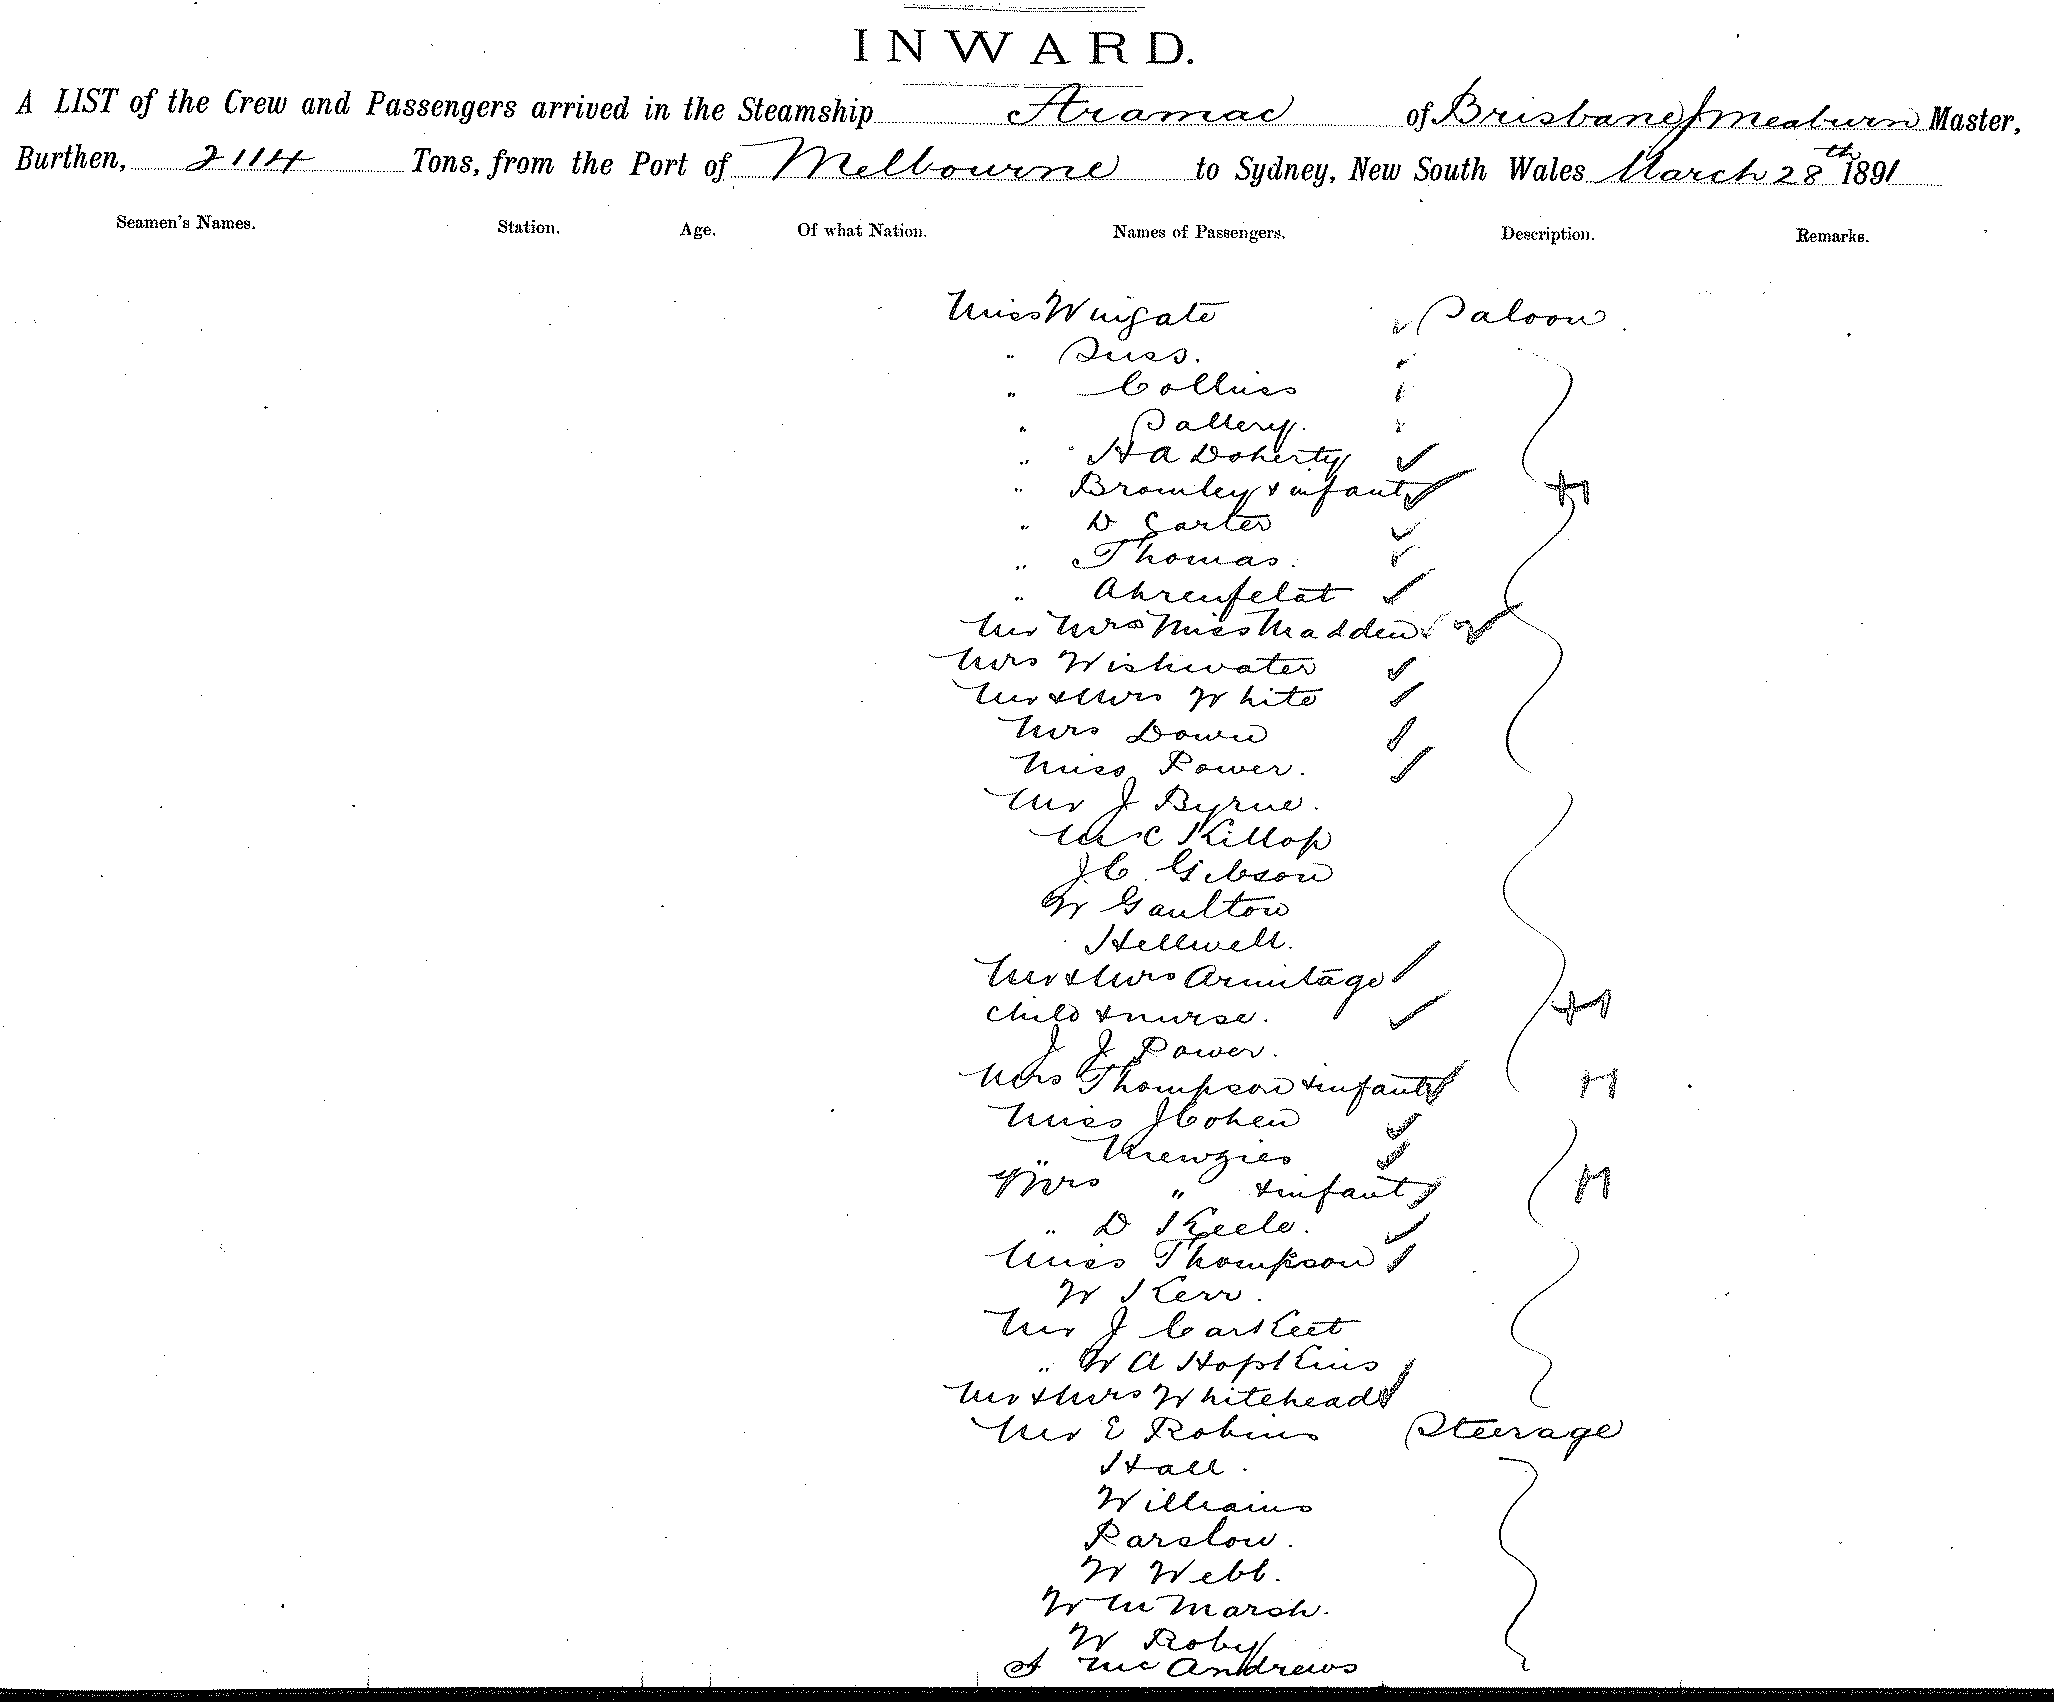 INWARD.
A LIST of the Crew and Passengers arrived in the Steamship Aramac of Brisbane J Meaburn Master,
Burthen, 2114 Tons, from the Port of Melbourne to Sydney, New South Wales March 28th 1891
Seamen's Names. Station. Age. Of what Nation. Names of Passengers. Description. Remarks.
Miss Wingate Saloon
" Suss.
" Collins
" Sallery.
" H A Doherty
" Bromley & infant
" D Carter
" Thomas.
" Ahrenfelat
Mr Mrs Miss Madden
Mrs Wishwater
Mr & Mrs White
Mrs Down
Miss Power.
Mr J Byrne.
McKillop
J C Gibson
W Gaulton
Hellwell.
Mr & Mrs Armitage
child & nurse.
J J Power.
Mrs Thompson & infant
Miss J Cohen
" Menzies
Mrs " & infant
" D Keele.
Miss Thompson
W Kerr.
Mr J Carkeet
" W A Hopkins
Mr & Mrs Whitehead
Mr E Robins Steerage
Hall.
Williams
Parslow.
W Webb.
W M Marsh.
W Roby
A McAndrews